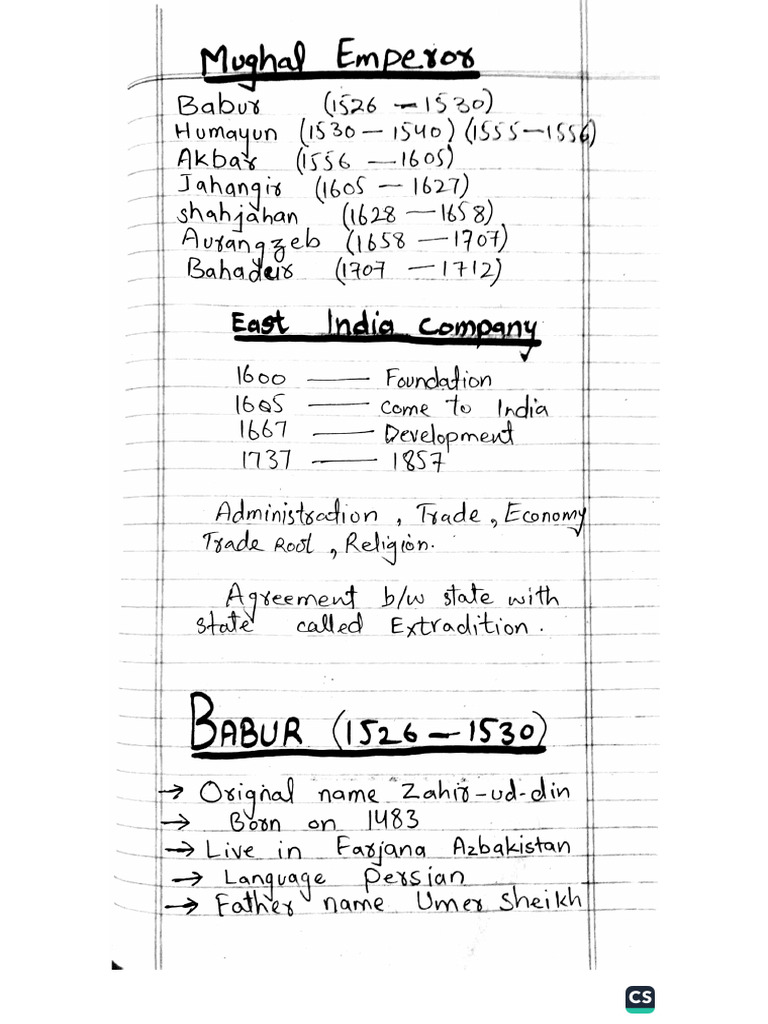 Mughal Emperor
Babur (1526 — 1530)
Humayun (1530 — 1540) (1555 — 1556)
Akbar (1556 — 1605)
Jahangir (1605 — 1627)
shahjahan (1628 — 1658)
Aurangzeb (1658 — 1707)
Bahadur (1707 — 1712)
East India Company
1600 — Foundation
1605 — come to India
1667 — Development
1737 — 1857
Administration, Trade, Economy
Trade Root, Religion.
Agreement b/w state with
state called Extradition.
BABUR (1526 — 1530)
→ Orignal name Zahir-ud-din
→ Born on 1483
→ Live in Farjana Azbakistan
→ Language Persian
→ Father name Umer Sheikh
CS